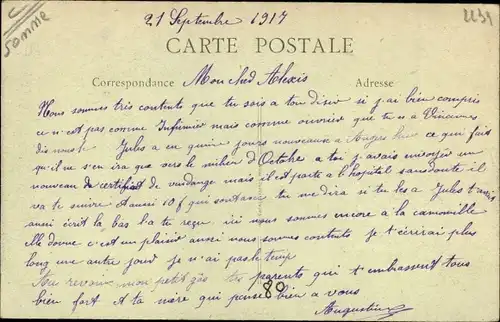 21 Septembre 1917
Somme
CARTE POSTALE
Correspondance Mon cher Alexis Adresse
Nous sommes très contents que tu sois a ton désir si j'ai bien compris
ce n'est pas comme Infirmier mais comme ouvrier que tu es a
dis nous le Jules a eu quinze jours nouveaux a Angers ce qui fait
qu'il ne s'en ira que vers le milieu d'Octobre a toi j'avais envoyé un
nouveau certificat de vendange mais il est parti a l'hopital sans doute il
va te suivre et aussi 10 f qui sont tu me dira si tu les a Jules t'avait
aussi écrit la bas l'a tu reçu ici nous sommes encore a la
Elle donne c'est un plaisir aussi nous sommes contents je t'écrirai plus
long une autre jour je n'ai pas le temp
Au revoir mon petit gâs tes parents qui t'embrassent tous
bien fort et ta mère qui pense bien a vous
Augustine
80